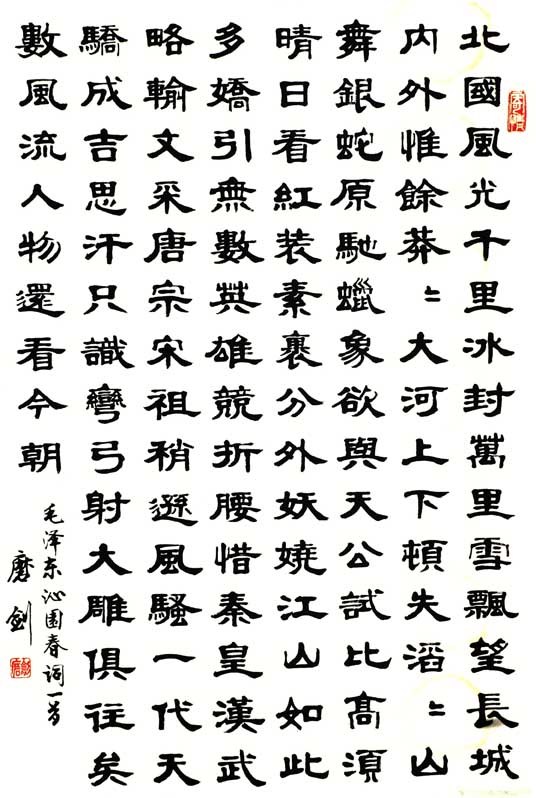 北國風光千里冰封萬里雪飄望長城
内外惟餘莽〻大河上下頓失滔〻山
舞銀蛇原馳蠟象欲與天公試比高須
晴日看紅装素裹分外妖嬈江山如此
多嬌引無數英雄競折腰惜秦皇漢武
略輸文采唐宗宋祖稍遜風騷一代天
驕成吉思汗只識彎弓射大雕俱往矣
數風流人物還看今朝
毛泽东沁園春词一首
磨剑